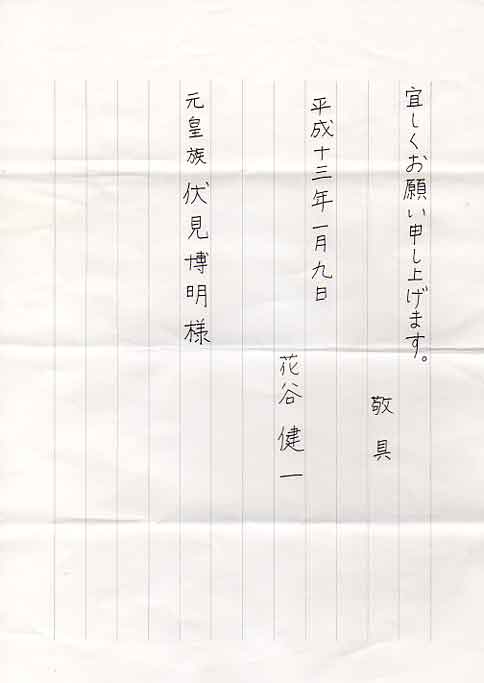 宜しくお願い申し上げます。
敬具
平成十三年一月九日
花谷健一
元皇族 伏見博明様